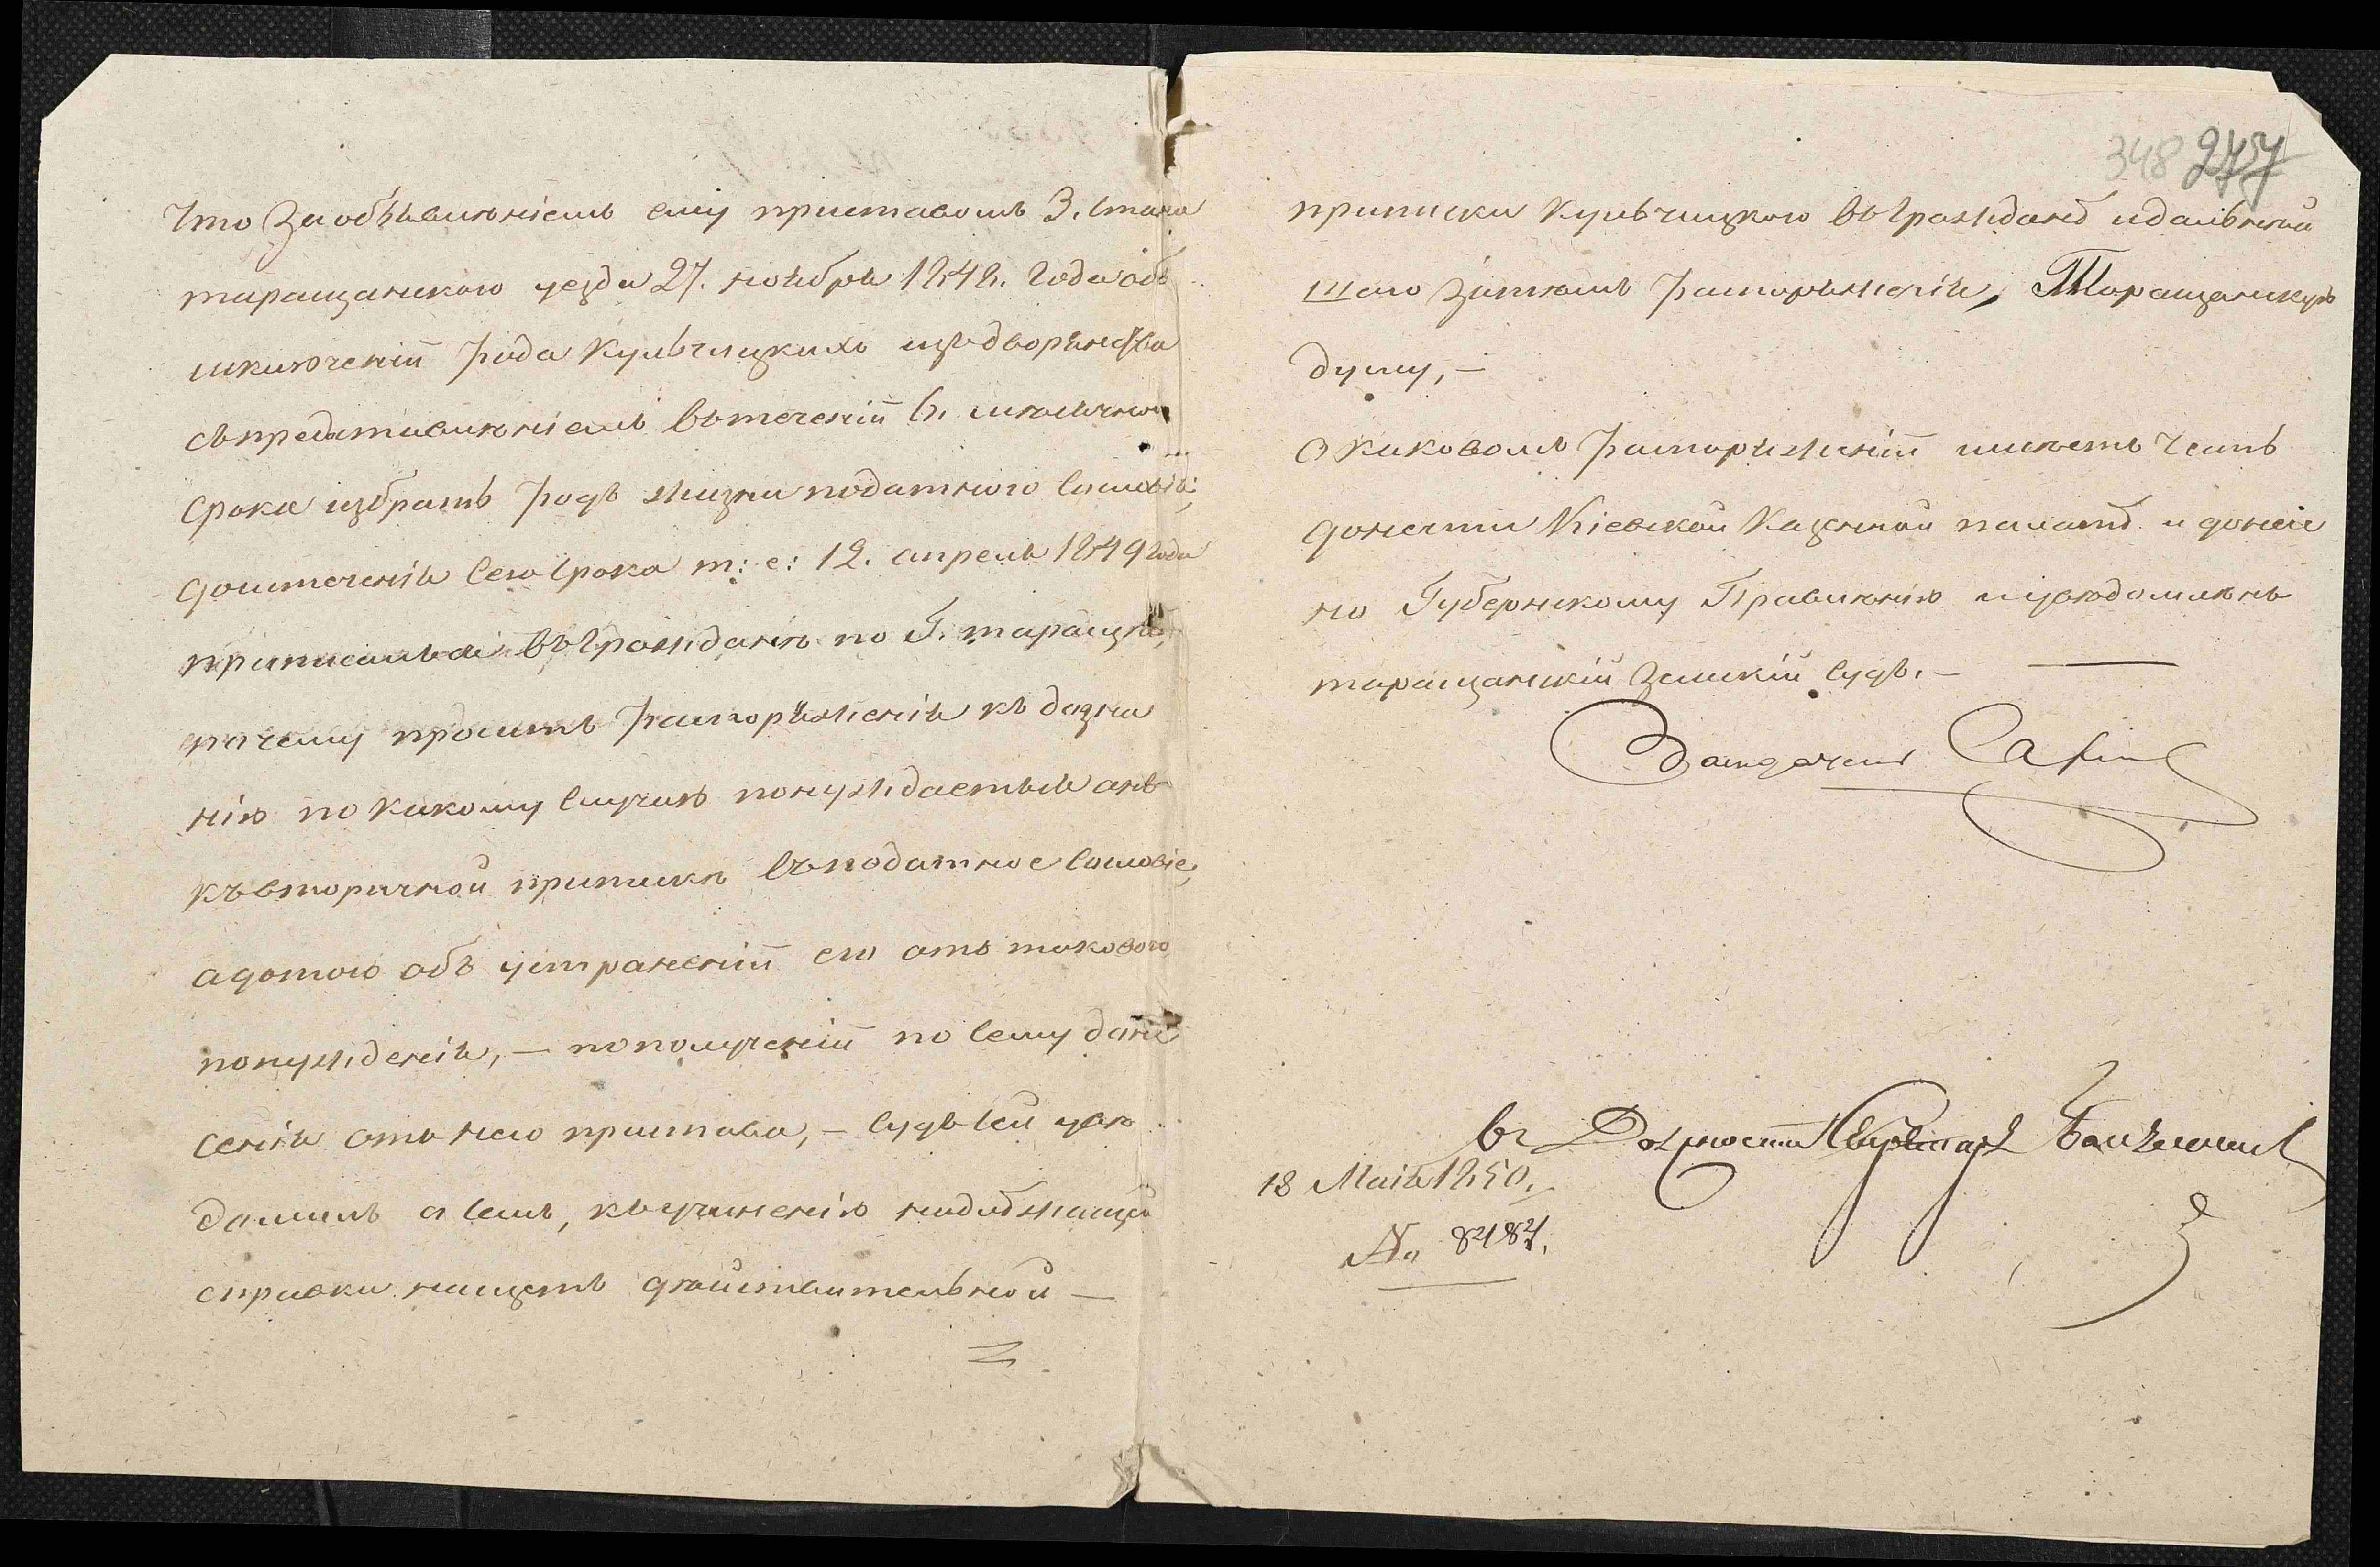 что за объявленіемъ ему приставомъ 3. стана
таращанскаго уезда 27. ноября 1848. года объ
исключеніи рода Кульчицкихъ изъ дворянства
съ предоставленіемъ въ теченіи 6. месячного
срока избрать родъ жизни податного сословія;
до истеченія сего срока т: е: 12. апреля 1849 года
приписался въ граждане по г. таращѣ,
почему проситъ распоряженія къ дозна
нію по какому случаю понуждается онъ
къ вторичной припискѣ въ податное сословіе,
а потомъ объ устраненіи его отъ таковаго
понужденія, — по полученіи по сему доне
сенія отъ него пристава, — судъ сей уве
домилъ о семъ, къ учиненію надлежащей
справки насчетъ действительной —
348 277
приписки Кульчицкого въ граждане и дальней
шаго затемъ распоряженія, Таращанскую
думу, —
О каковомъ распоряженіи имеетъ честь
донести Кіевской Казенной палатѣ и донесе
но Губернскому Правленію и уведомленъ
таращанскій земскій судъ. —
Заседатель
въ Должности Секретаря
18 Маія 1850.
№ 8484.